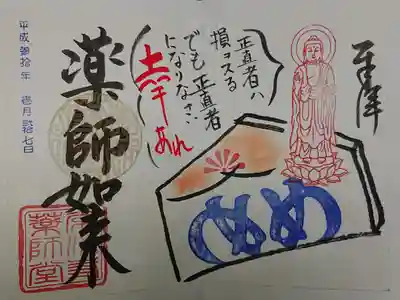 奉拝
正直者ハ
損ヲスる
でも 正直者
になりなさい
幸あれ
めめ
薬師如来
薬師堂
平成 拾年 壱月 七日